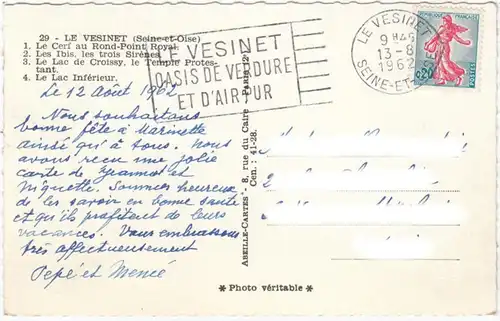 29 - LE VESINET (Seine-et-Oise)
1. Le Cerf au Rond-Point Royal.
2. Les Ibis, les trois Sirènes.
3. Le Lac de Croissy, le Temple Protes-
tant.
4. Le Lac Inférieur.
LE VESINET
OASIS DE VERDURE
ET D'AIR PUR
LE VESINET
9H45
13-8
1962
SEINE-ET-OISE
FRANÇAISE
0,20
POSTES
Le 12 Août 1962
Nous souhaitons
bonne fête à Marinette
ainsi qu'à tous. Nous
avons reçu une jolie
carte de et
Niquette. Sommes heureux
de les savoir en bonne santé
et qu'ils profitent de leurs
vacances. Vous embrassons
très affectueusement
Pepé et Memé
ABEILLE-CARTES - 8, rue du Caire - Paris (2e)
Cen. : 41-28.
* Photo véritable *